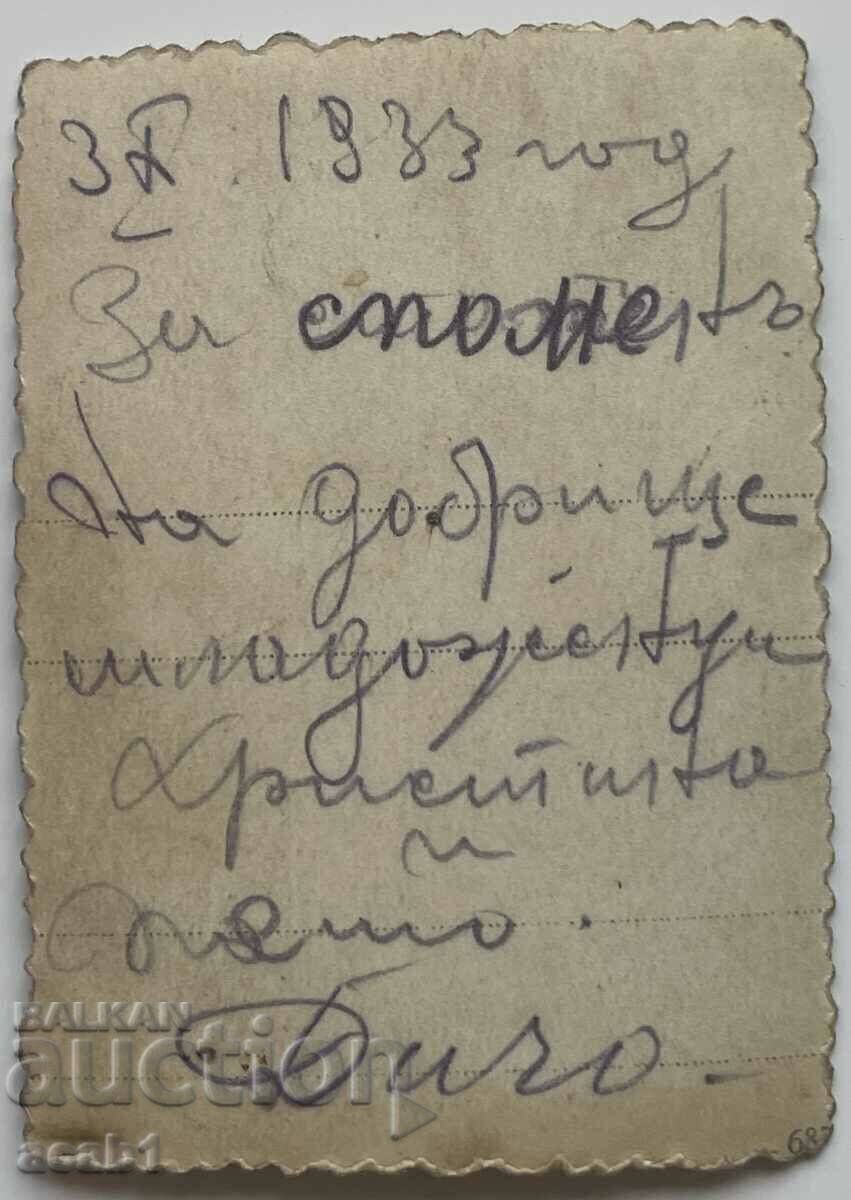 3 X 1933 год
За споменъ
на добрище
младоженци
Христина
и
Бичо.
BALKAN
auction
acab1
687